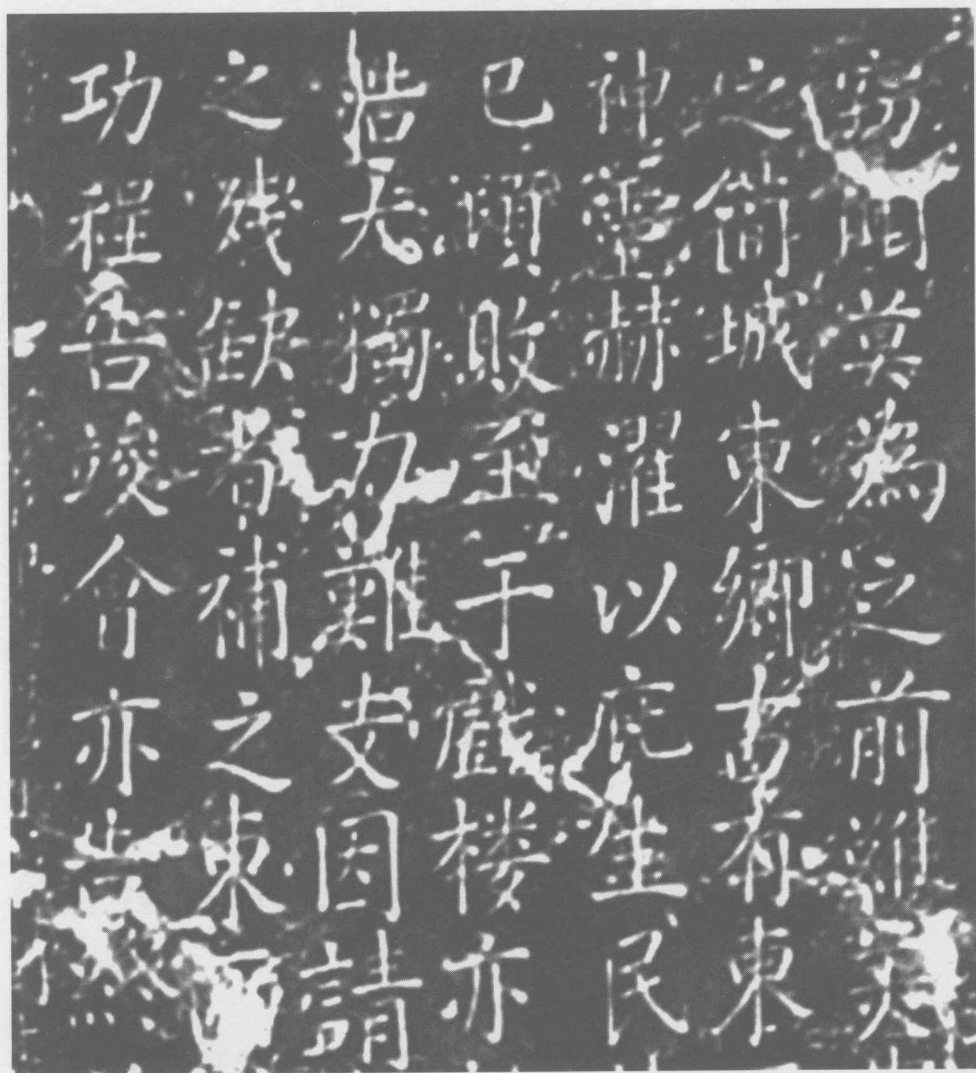 窃聞莫為之前雖美
之城東鄉古有東
神靈赫濯以庇生民
已頃敗至于戲楼亦
浩大獨力難支因請
之殘缺者補之東
功程告竣介亦